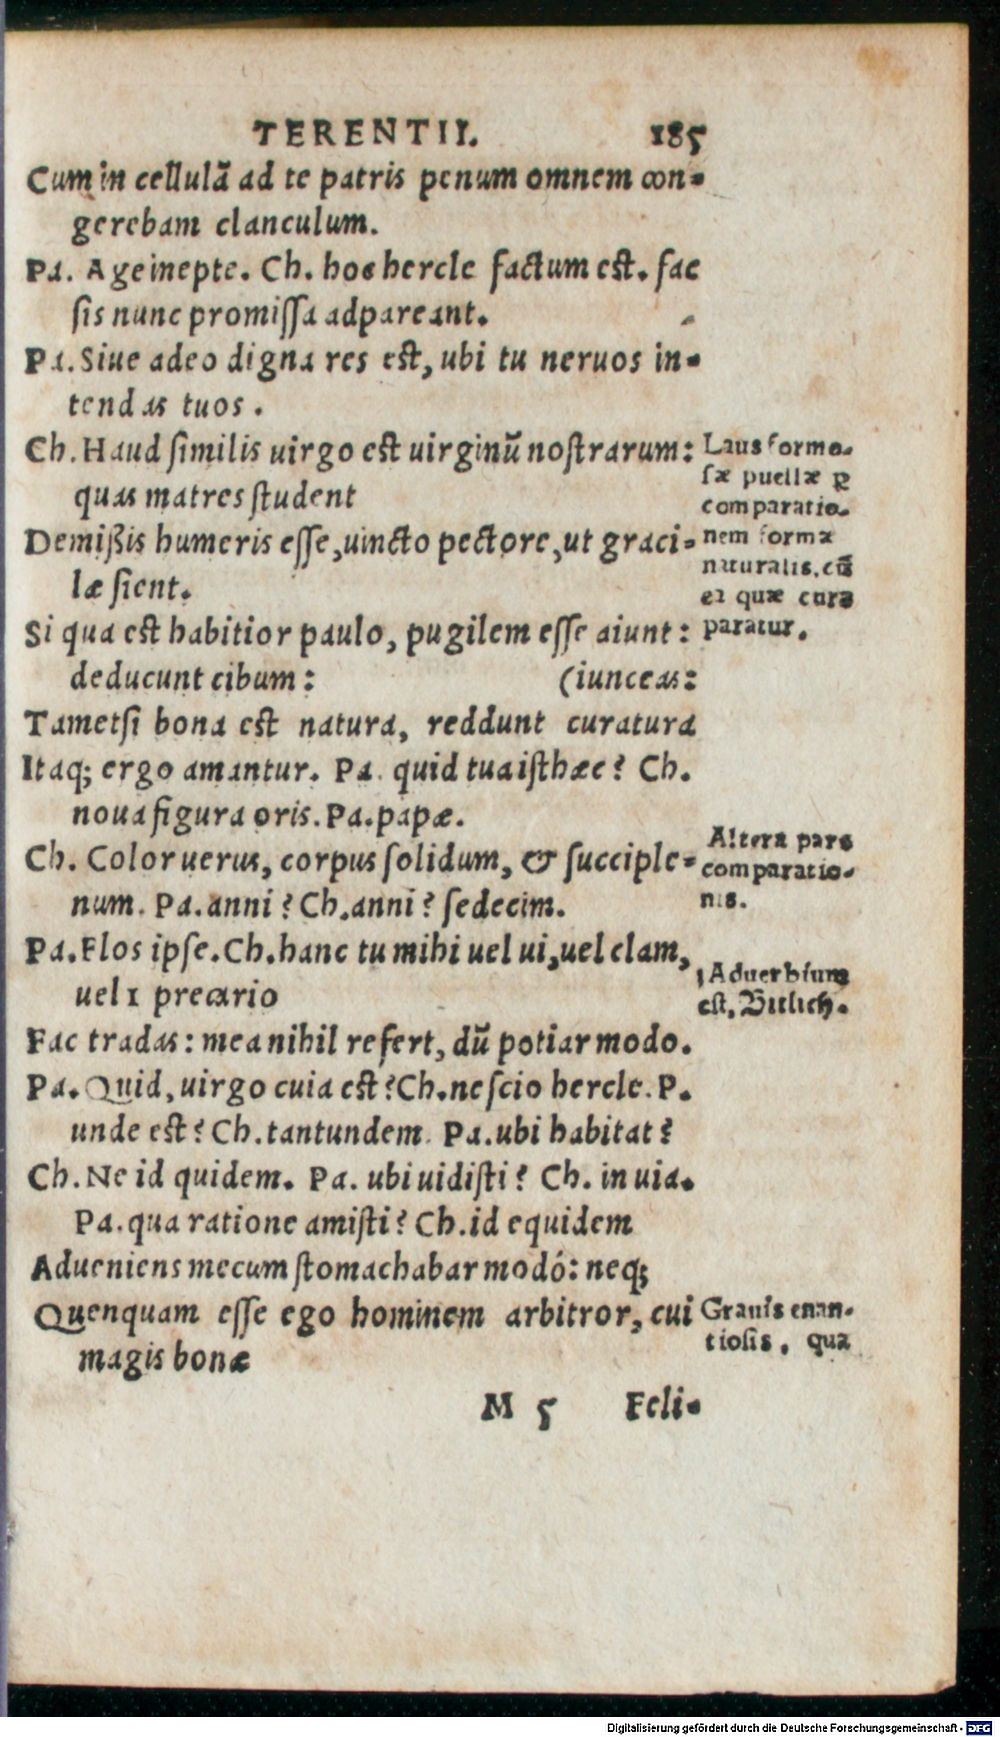 TERENTII. 185
Cum in cellulā ad te patris penum omnem con-
gerebam clanculum.
Pa. Age inepte. Ch. hoc hercle factum est. fac
sis nunc promissa adpareant.
Pa. Siue adeo digna res est, ubi tu neruos in-
tendas tuos.
Ch. Haud similis uirgo est uirginū nostrarum:
quas matres student
Demißis humeris esse, uincto pectore, ut graci-
læ sient.
Si qua est habitior paulo, pugilem esse aiunt:
deducunt cibum: (iunceas:
Tametsi bona est natura, reddunt curatura
Itaq; ergo amantur. Pa. quid tua isthæc? Ch.
noua figura oris. Pa. papæ.
Ch. Color uerus, corpus solidum, & succi ple-
num. Pa. anni? Ch. anni? sedecim.
Pa. Flos ipse. Ch. hanc tu mihi uel ui, uel clam,
uel 1 precario
Fac tradas: mea nihil refert, dū potiar modo.
Pa. Quid, uirgo cuia est? Ch. nescio hercle. P.
unde est? Ch. tantundem. Pa. ubi habitat?
Ch. Ne id quidem. Pa. ubi uidisti? Ch. in uia.
Pa. qua ratione amisti? Ch. id equidem
Adueniens mecum stomachabar modó: neq;
Quenquam esse ego hominem arbitror, cui
magis bonæ
M 5 Feli-
Laus formo-
sæ puellæ ꝑ
comparatio-
nem formæ
naturalis, cū
ea quæ cura
paratur.
Altera pars
comparatio-
nis.
1 Aduerbium
est, Bitlich.
Grauis enan-
tiosis, qua
Digitalisierung gefördert durch die Deutsche Forschungsgemeinschaft - DFG